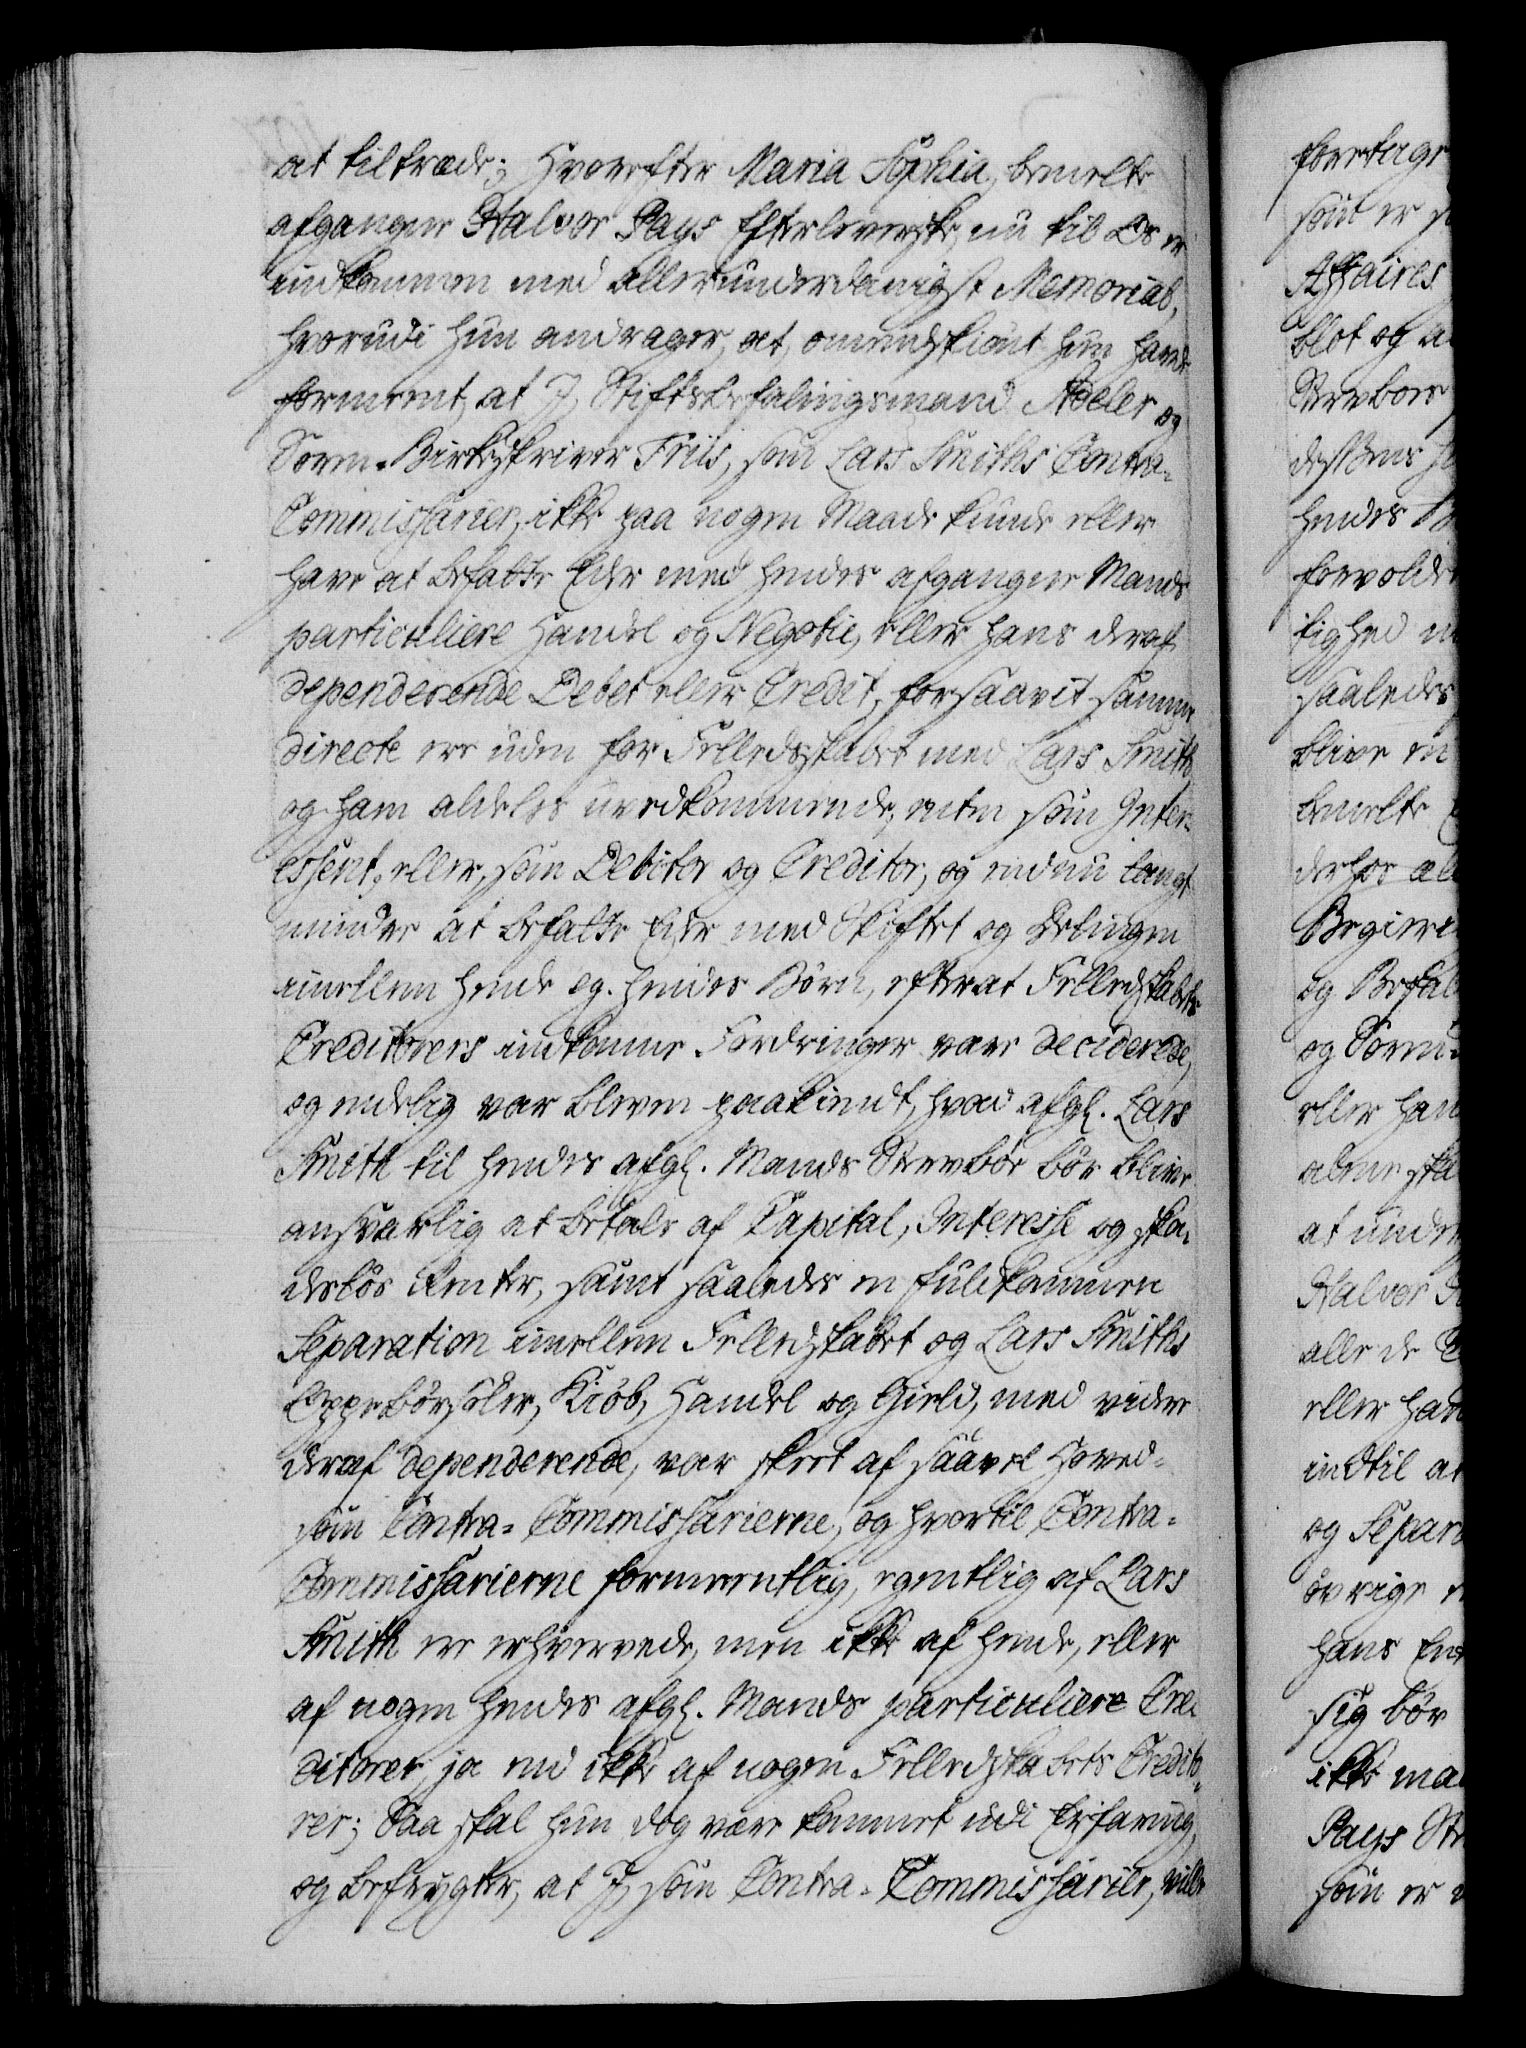 at tiltræde; Hvorefter Maria Sophia, bemelte
afgangne Halvor Pays Efterleverske, nu til Os er
indkommen med allerunderdanigst Memorial,
hvorudi hun andrager, at, omendskiønt hun havde
formeent, at I, Stiftsbefalingsmand Adeler og
Sorenskriver Friis, som Lars Smiths Contra-
Commissarier, ikke paa nogen Maade kunde eller
have at befatte Eder med hendes afgangne Mands
particuliere Handel og Negotie, eller hans deraf
dependerende Debet eller Credit, forsaavit samme
directe ere uden for Felledskabet med Lars Smith
og ham aldeles uvedkommende, enten som Inter-
essent, eller, som Debitor og Creditor, og endnu langt
mindre at befatte Eder med Skiftet og Delingen
imellem hende og hendes Børn, efterat Felledskabets
Creditorers indkomne Fordringer vare deciderede,
og endelig var bleven paakiendt, hvad afgl. Lars
Smith til hendes afgl. Mands Stervboe bør blive
ansvarlig at betale af Capital, Interesse og ska-
desløs Renter, samt saaledes en fuldkommen
Separation imellem Felledskabet og Lars Smiths
Oppebørseler, Kiøb, Handel og Gield, med videre
deraf dependerende, var skeet af saavel Hoved-
som Contra-Commissarierne, og hvortil Contra-
Commissarierne formeentlig, egentlig af Lars
Smith ere erhvervede, men ikke af hende, eller
af nogen hendes afgl. Mands particuliere Cre-
ditorer, ja end ikke af nogen Felledskabets Credito-
rer; Saa skal hun dog være kommet udi Erfaring,
og befrygter, at I, som Contra-Commissarier, ville
foretage
som er
Affaires
blot og
Stervboes
hendes
forvolde
tighed
saaledes
blive en
bemelte
derhos
og
og Soren-
eller han
alene
at under
Halvor
alle de
eller han
indtil at
og Separa
øvrige
hans
sig bør
ikke maa
Pays
som er